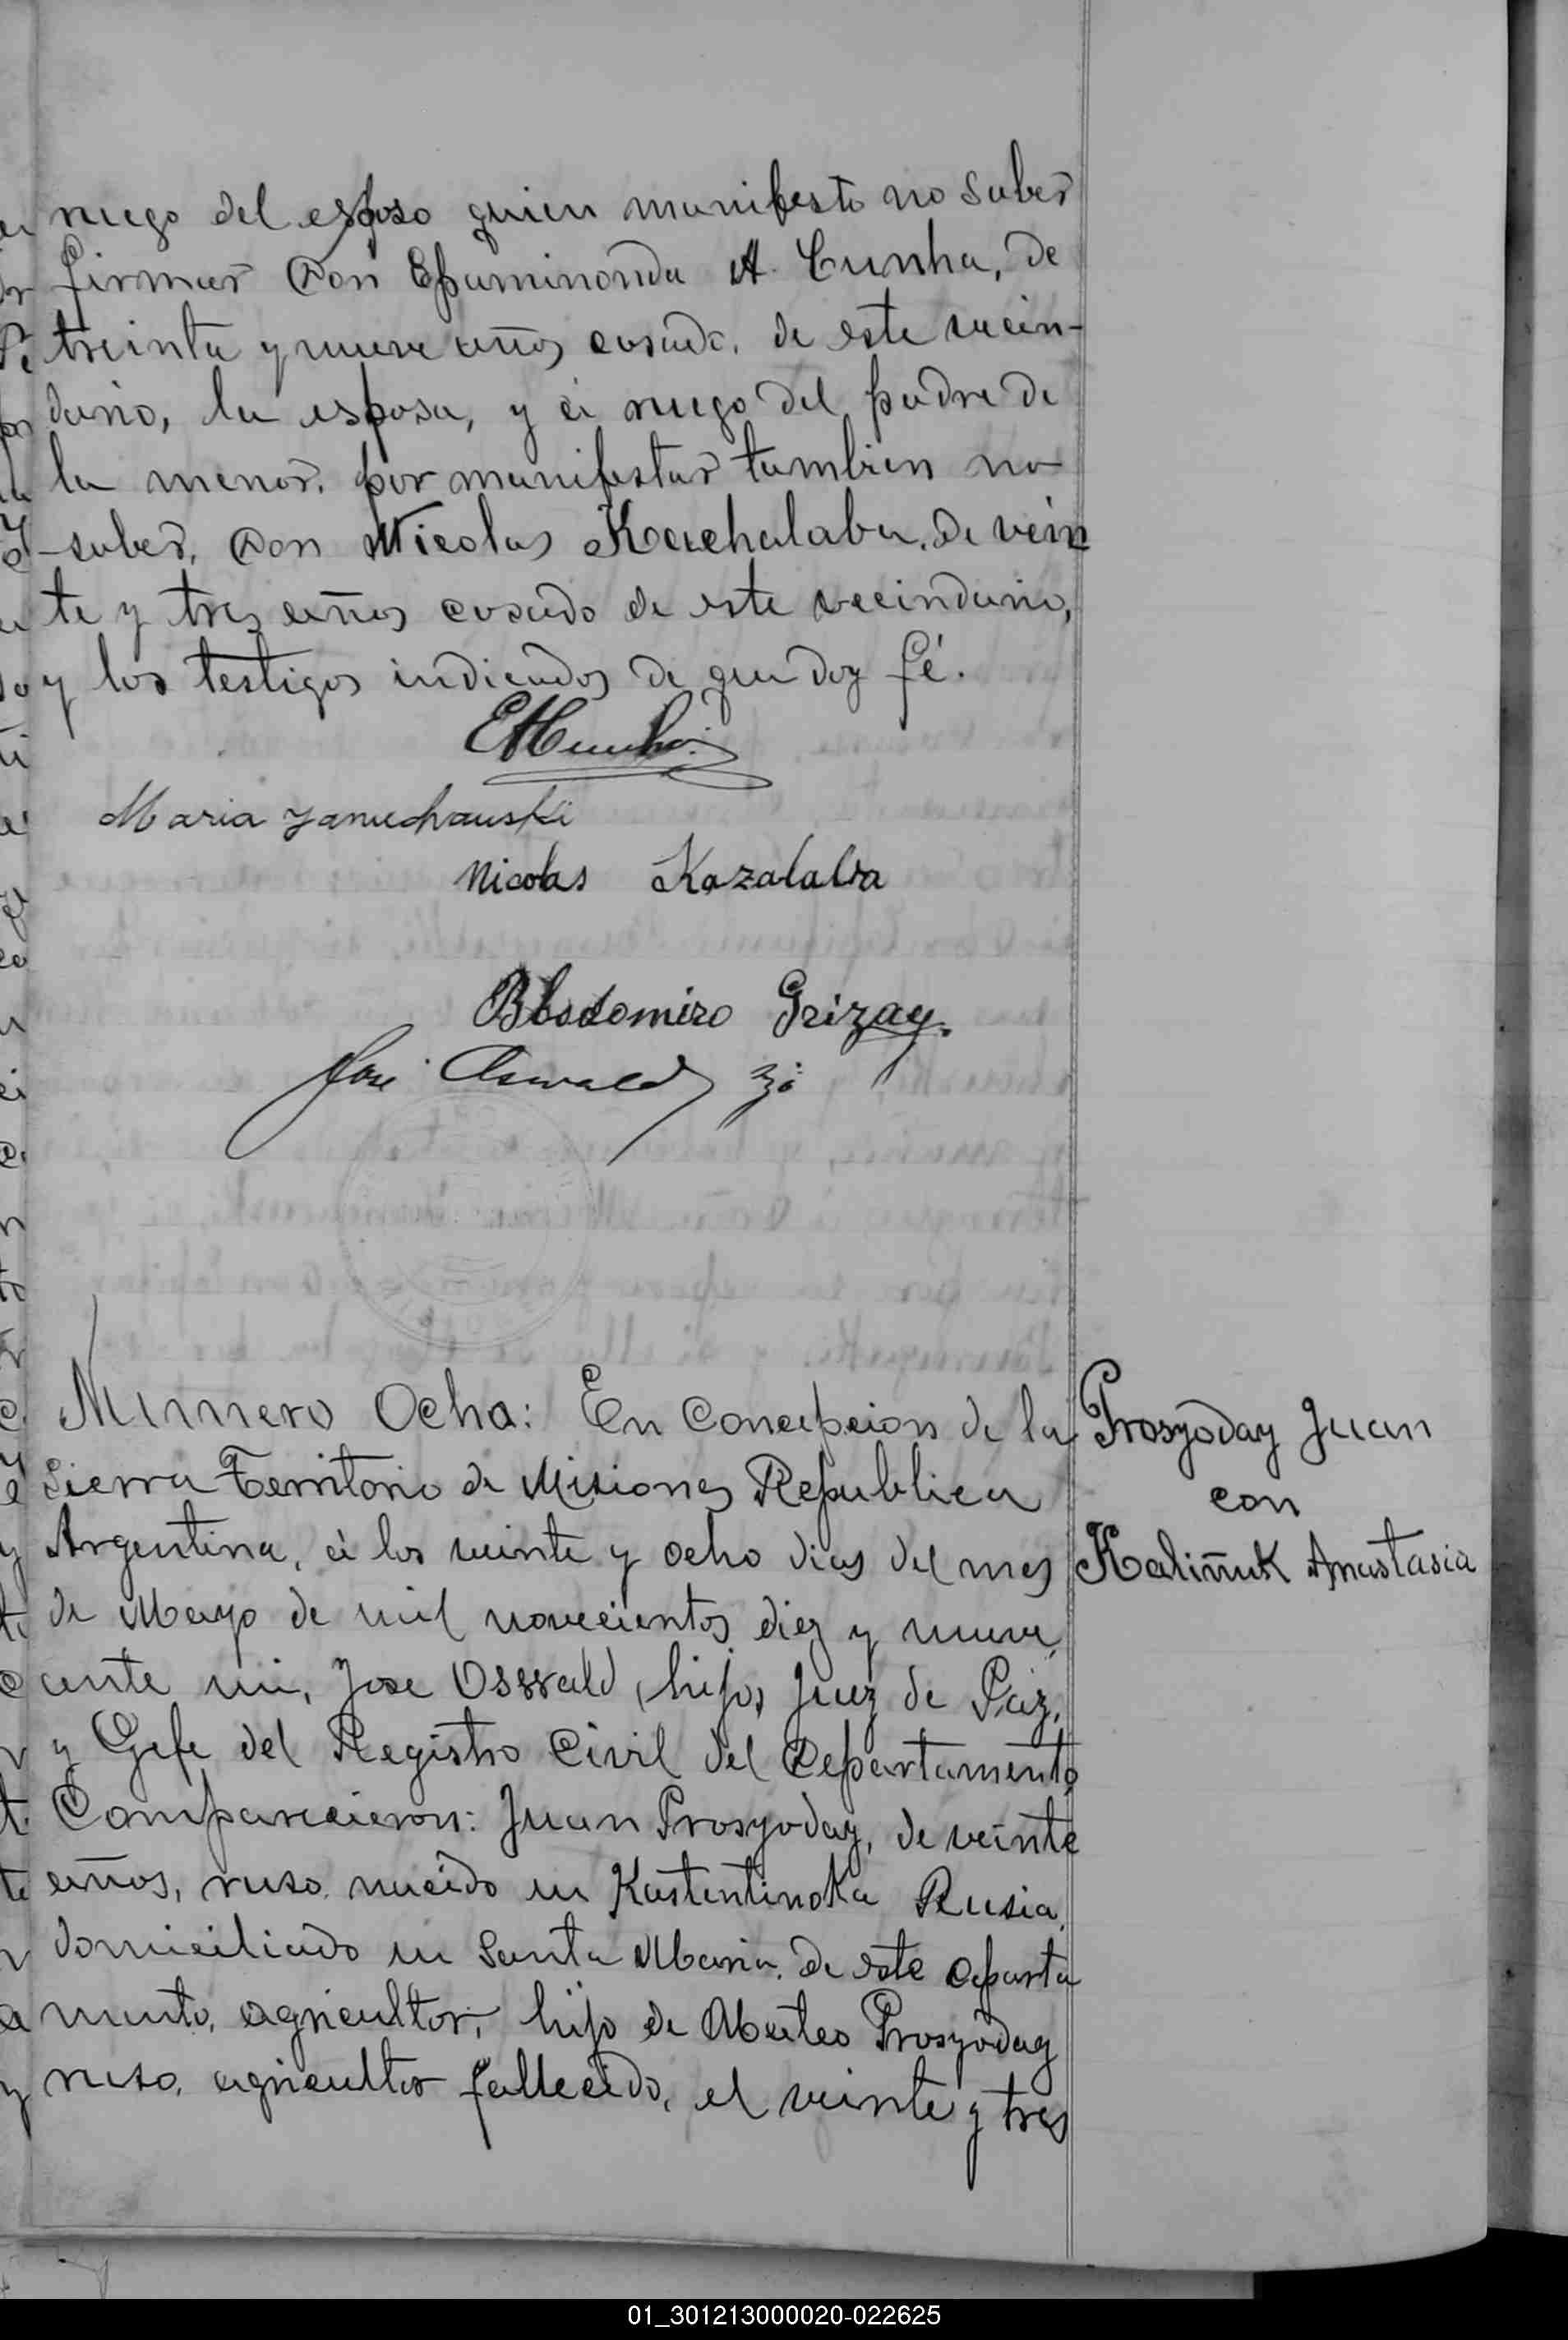 ruego del esposo quien manifesto no saber
firmar Don Epaminonda A. Cunha, de
treinta y nueve años casado, de este vecin-
dario, la esposa, y á ruego del padre de
la menor, por manifestar tambien no
saber, Don Nicolas Kachalaba, de vein
te y tres años casado de este vecindario,
y los testigos indicados de que doy fé.
EACunha
Maria Januchauski
Nicolas Kazalaba
Blodomiro Grizay.
Jose Oswald hijo
Numero Ocho: En Concepcion de la
Sierra Territorio de Misiones Republica
Argentina, á los veinte y ocho dias del mes
de Mayo de mil novecientos diez y nueve,
ante mi, Jose Osswald, hijo, Juez de Paz,
y Gefe del Registro Civil del Departamento,
Comparecieron: Juan Prosyoday, de veinte
años, ruso, nacido en Kastentinoka Rusia,
domiciliado en Santa Maria, de este departa
mento, agricultor, hijo de Mateo Prosyoday
ruso, agricultor fallecido, el veinte y tres
Prosyoday Juan
con
Kaliñuk Anastasia
01_301213000020-022625